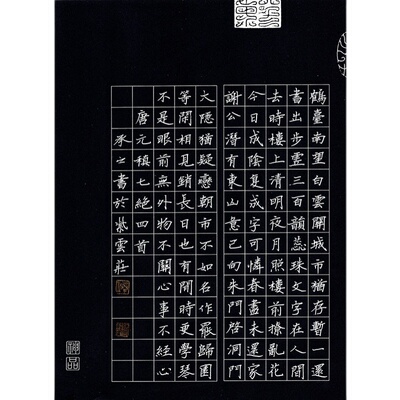 鶴臺南望白雲關城市猶存暫一還
書出步虛三百韻蕊珠文字在人間
去時樓上清明夜月照樓前撩亂花
今日成陰復成字可憐春盡未還家
謝公潛有東山意已向朱門啓洞門
大隱猶疑戀朝市不如名作罷歸園
等閑相見銷長日也有閑時更學琴
不是眼前無外物不關心事不經心
唐元稹七絕四首
承之書於紫雲莊